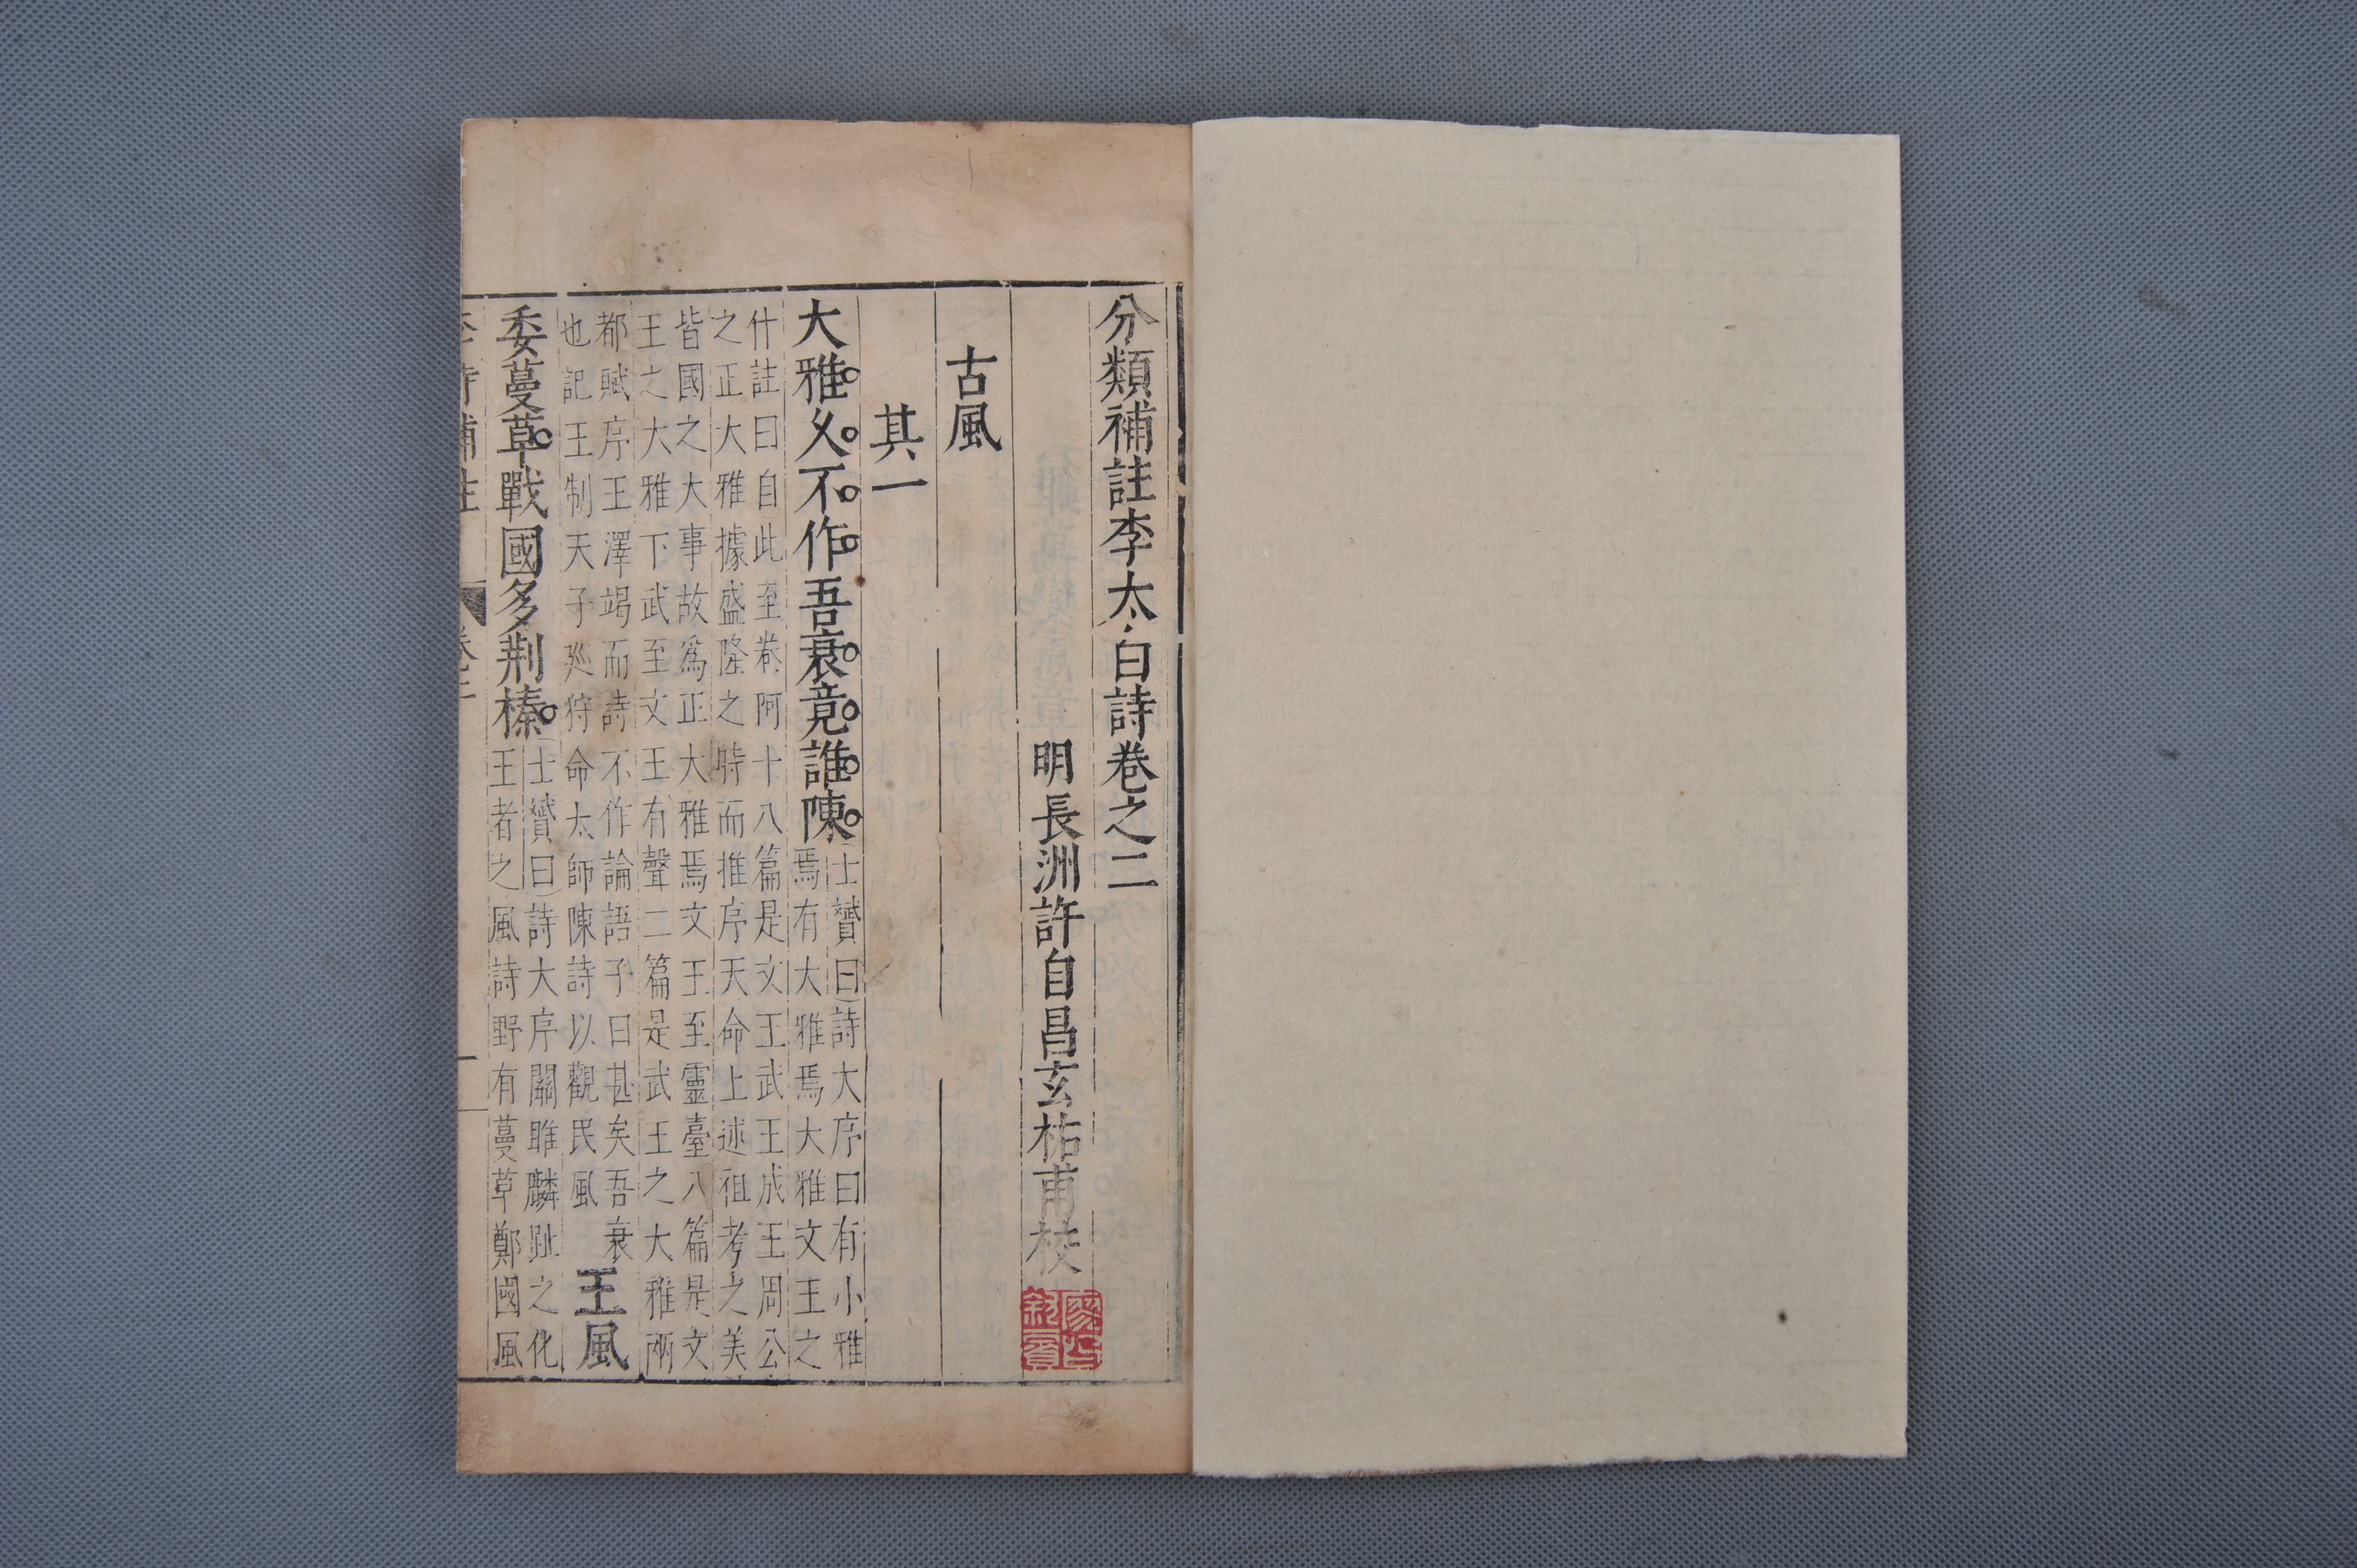 分類補註李太白詩卷之二
明長洲許自昌玄祐甫校
古風
其一
大雅久不作吾衰竟誰陳
士贇曰詩大序曰有小雅
焉有大雅焉大雅文王之
什註曰自此至卷阿十八篇是文王武王成王周公
之正大雅據盛隆之時而推序天命上述祖考之美
皆國之大事故爲正大雅焉文王至靈臺八篇是文
王之大雅下武至文王有聲二篇是武王之大雅兩
都賦序王澤竭而詩不作論語子曰甚矣吾衰
也記王制天子廵狩命太師陳詩以觀民風
王風
委蔓草戰國多荆榛
士贇曰詩大序關雎麟趾之化
王者之風詩野有蔓草鄭國風
李詩補註
卷二
一